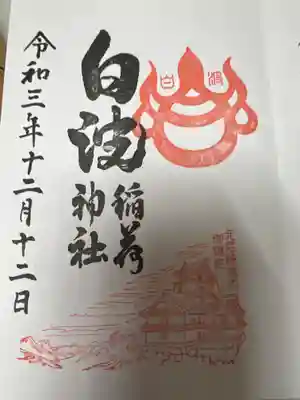 白波
稲荷
神社
白波
令和三年十二月十二日